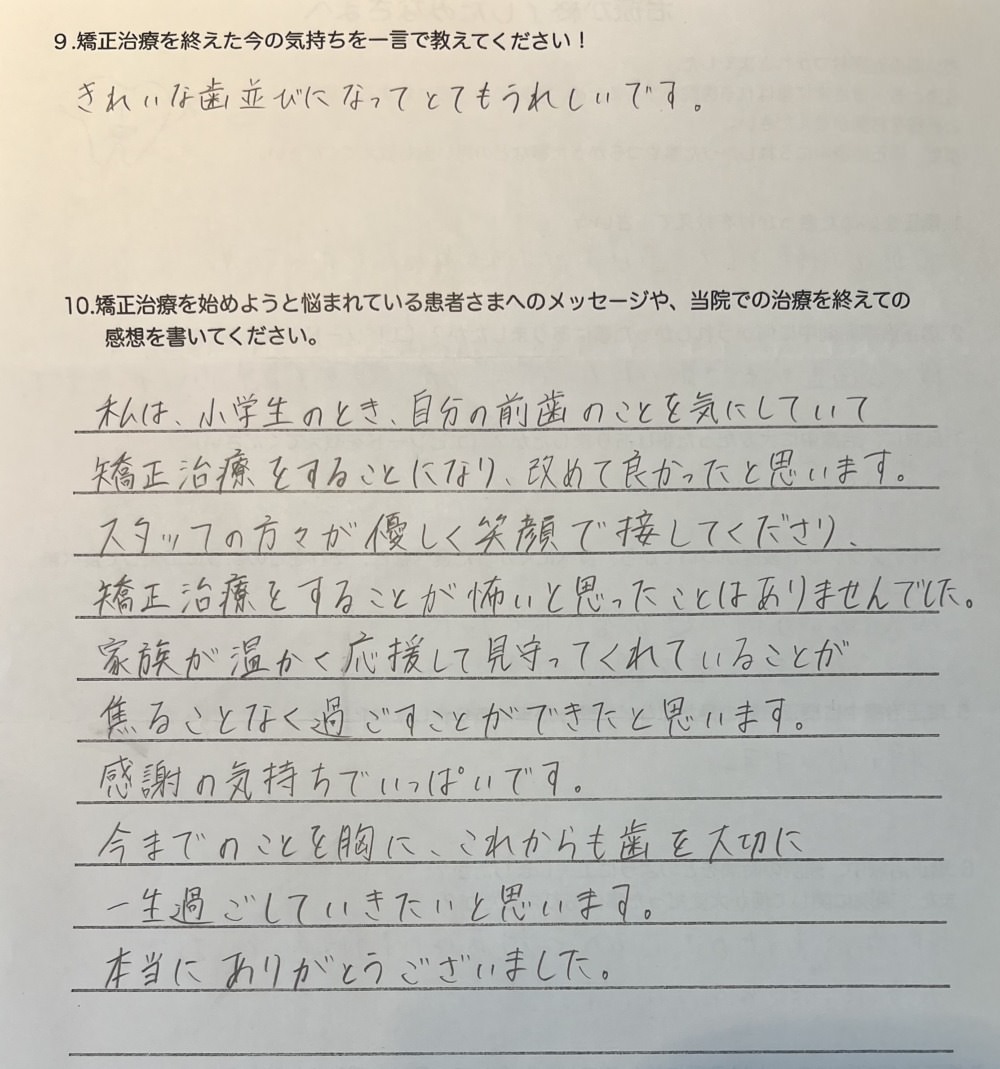 9.矯正治療を終えた今の気持ちを一言で教えてください！
きれいな歯並びになってとてもうれしいです。
10.矯正治療を始めようと悩まれている患者さまへのメッセージや、当院での治療を終えての
感想を書いてください。
私は、小学生のとき、自分の前歯のことを気にしていて
矯正治療をすることになり、改めて良かったと思います。
スタッフの方々が優しく笑顔で接してくださり、
矯正治療をすることが怖いと思ったことはありませんでした。
家族が温かく応援して見守ってくれていることが
焦ることなく過ごすことができたと思います。
感謝の気持ちでいっぱいです。
今までのことを胸に、これからも歯を大切に
一生過ごしていきたいと思います。
本当にありがとうございました。